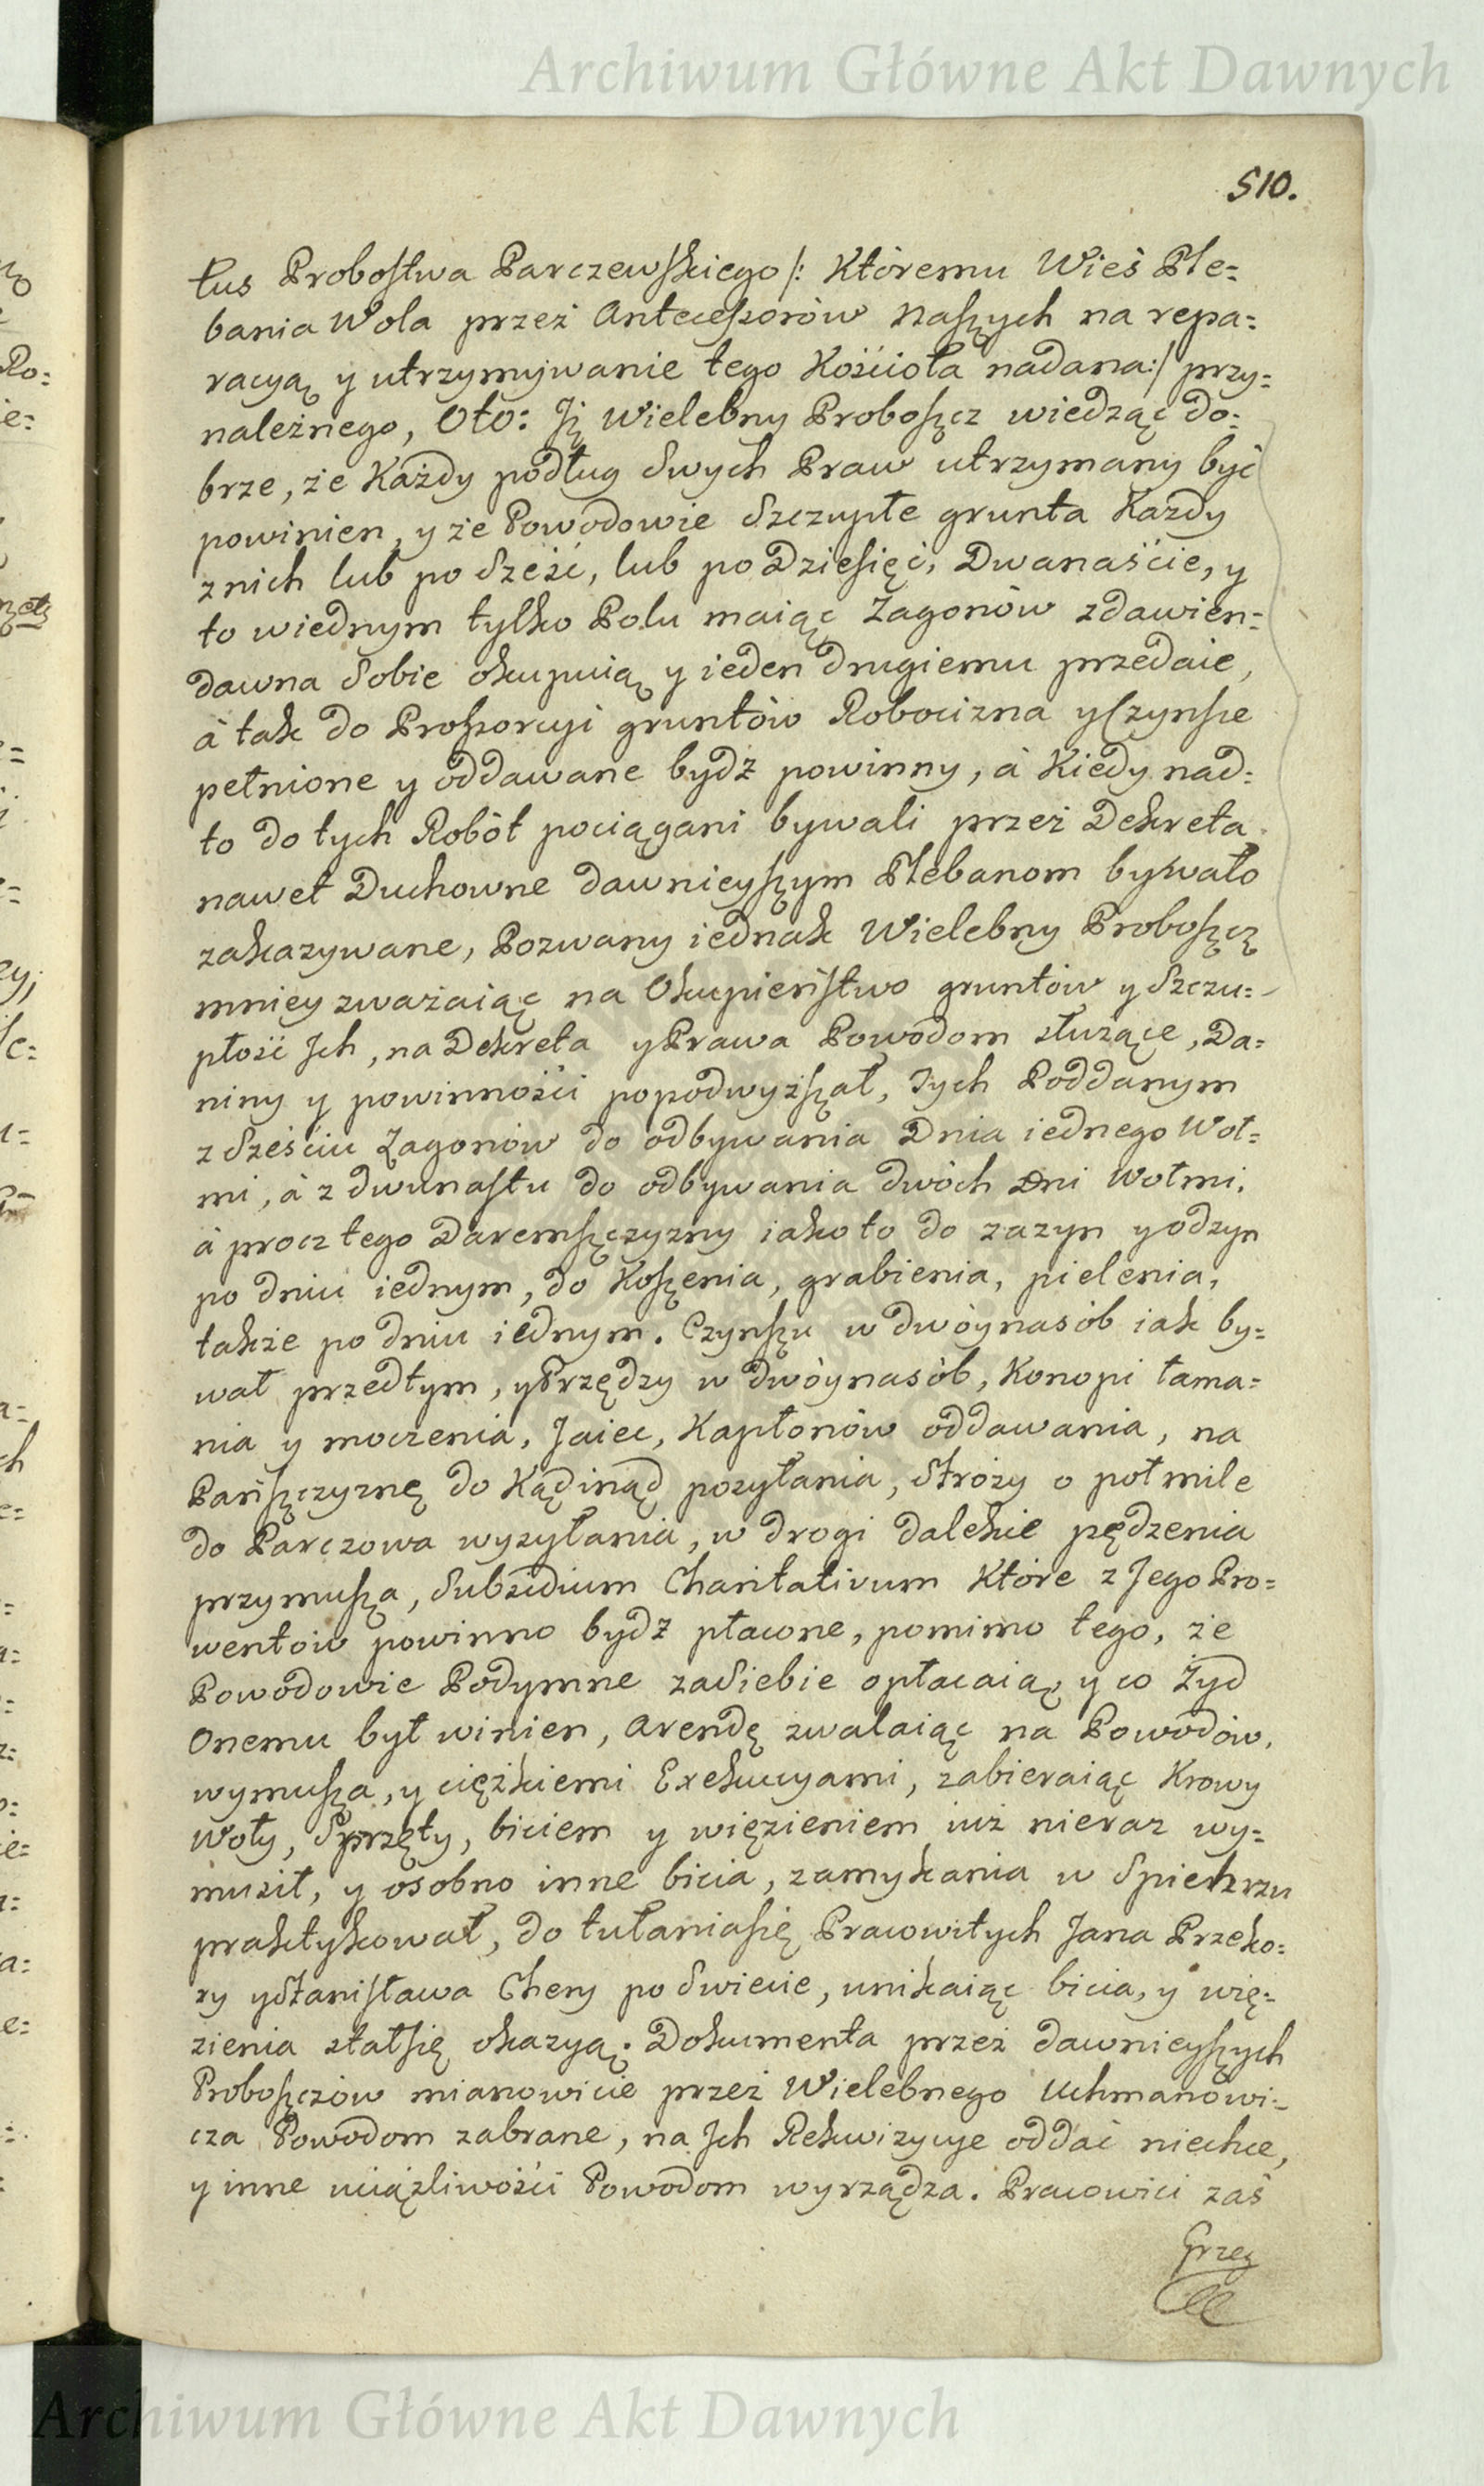 Archiwum Główne Akt Dawnych
510.
tus Probostwa Parczewskiego /: Któremu Wieś Ple=
bania Wola przez Antecessorów Naszych na repa=
racyą y utrzymywanie tego Kościoła nadana :/ przy=
należnego, Oto: Iż Wielebny Proboszcz wiedząc do=
brze, że Każdy podług Swych Praw utrzymany być
powinien, y że Powodowie Szczupłe grunta Kazdy
znich lub po Sześć, lub po Dziesięć, Dwanaście, y
to wiednym tylko Polu maiąc Zagonów zdawien=
dawna Sobie okupuią y ieden drugiemu przedaie,
à tak do Proporcyi gruntów Robocizna yczynsze
pełnione y oddawane bydź powinny, à Kiedy nad=
to do tych Robót pociągani bywali przez Dekreta
nawet Duchowne dawnieyszym Plebanom bywało
zakazywane, Pozwany iednak Wielebny Proboszcz
mniey zważaiąc na Okupieństwo gruntów y Szczu=
płość Ich, na Dekreta y Prawa Powodom służące, Da=
niny y powinności popodwyższał, Tych Poddanym
z Sześciu Zagonów do odbywania Dnia iednego Woł=
mi, à z dwunastu do odbywania dwóch Dni Wołmi,
à procz tego Daremszczyzny iako to do zazyn y odzyn
po dniu iednym, do Koszenia, grabienia, pielenia,
także po dniu iednym. Czynszu w dwóynasób iak by=
wał przedtym, y Przędzy w dwóynasób, Konopi łama=
nia y moczenia, Jaiec, Kapłonów oddawania, na
Pańszczyznę do Kądinąd posyłania, Stróży o poł mile
do Parczowa wysyłania, w drogi dalekie pędzenia
przymusza, Subsidium Charitativum Które z Jego Pro=
wentów powinno bydź płacone, pomimo tego, że
Powodowie Podymne zasiebie opłacaią, y co Żyd
Onemu był winien, Arendę zwalaiąc na Powodów,
wymusza, y ciężkiemi Exekucyami, zabieraiąc Krowy
Woły, Sprzęty, biciem y więzieniem iuż nieraz wy=
musił, y osobno inne bicia, zamykania w Spichrzu
praktykował, do tułaniasię Pracowitych Jana Przeko=
ry yStanisława Chery po Swiecie, unikaiąc bicia, y wię=
zienia stałsię okazyą. Dokumenta przez dawnieyszych
Proboszczów mianowicie przez Wielebnego Uchmanowi=
cza Powodom zabrane, na Ich Rekwizycye oddać niechce,
y inne uciążliwości Powodom wyrządza. Pracowici zaś
Grzeg
Archiwum Główne Akt Dawnych